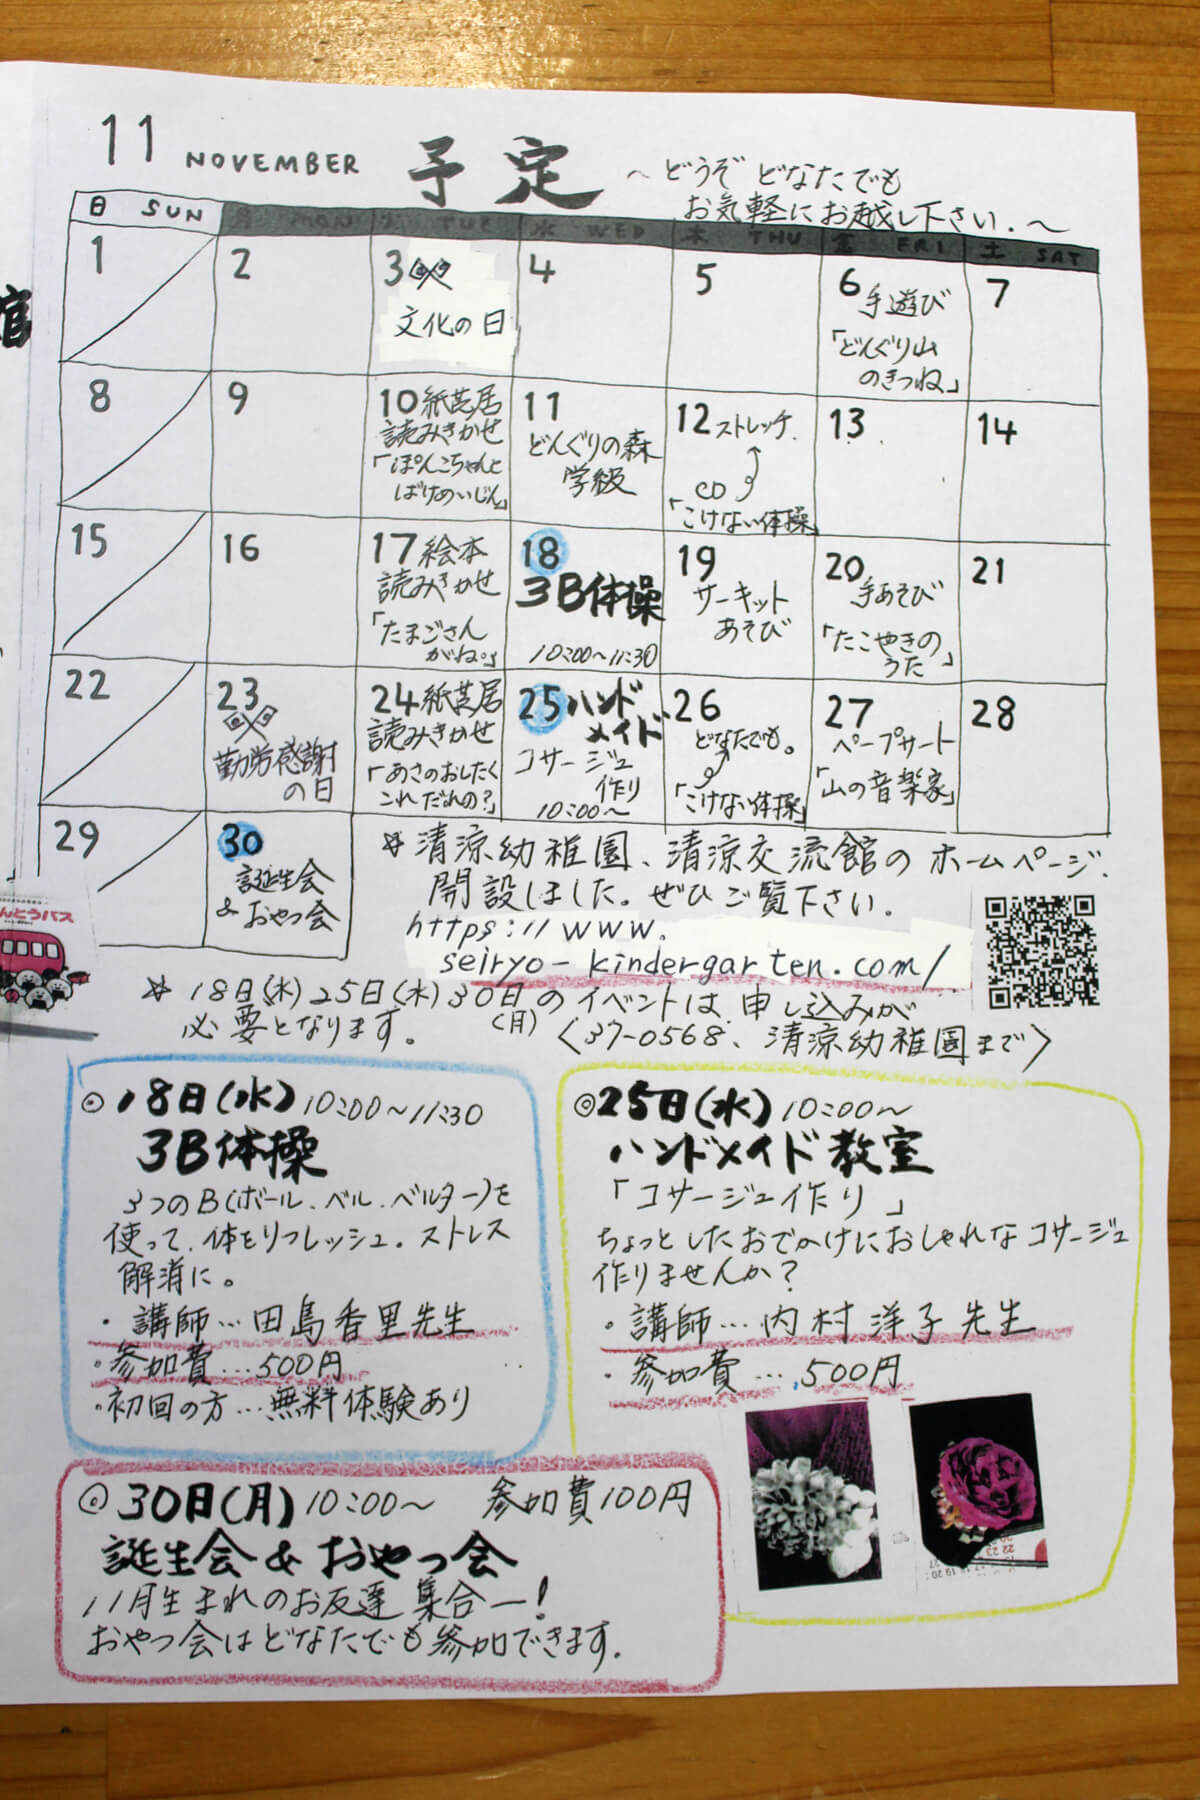 11 NOVEMBER 予定
～どうぞ どなたでも
お気軽にお越し下さい.～
日 SUN 月 MON 火 TUE 水 WED 木 THU 金 FRI 土 SAT
1
2
3
文化の日
4
5
6 手遊び
「どんぐり山
のきつね」
7
8
9
10 紙芝居
読みきかせ
「ぽんこちゃんと
ばけめいじん」
11
どんぐりの森
学級
12 ストレッチ
CD
「こけない体操」
13
14
15
16
17 絵本
読みきかせ
「たまごさん
がね。」
18
3B体操
10:00～11:30
19
サーキット
あそび
20
手あそび
「たこやきの
うた」
21
22
23
勤労感謝
の日
24 紙芝居
読みきかせ
「あさのおしたく
これだれの?」
25 ハンド
メイド
コサージュ
作り
10:00～
26
どなたでも。
「こけない体操」
27
ペープサート
「山の音楽家」
28
29
30
誕生会
& おやつ会
☆ 清涼幼稚園、清涼交流館のホームページ.
開設しました。ぜひご覧下さい.
https://www.
seiryo-kindergarten.com/
☆ 18日(水) 25日(水) 30日(月)のイベントは申し込みが
必要となります。 〈37-0568、清涼幼稚園まで〉
館
んとうバス
◎18日(水) 10:00～11:30
3B体操
3つのB(ボール、ベル、ベルター)を
使って、体をリフレッシュ。ストレス
解消に。
・講師…田島香里先生
・参加費…500円
・初回の方…無料体験あり
◎25日(水) 10:00～
ハンドメイド教室
「コサージュ作り」
ちょっとしたおでかけにおしゃれなコサージュ
作りませんか?
・講師…内村洋子先生
・参加費…500円
◎30日(月) 10:00～ 参加費100円
誕生会&おやつ会
11月生まれのお友達集合ー!
おやつ会はどなたでも参加できます.